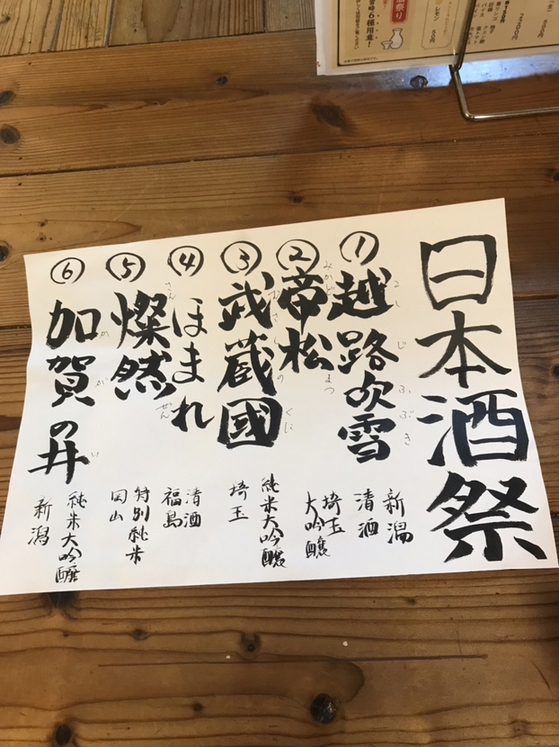 日本酒祭
①越路吹雪
こしじふぶき
新潟
清酒
②帝松
みかどまつ
埼玉
大吟醸
③武蔵國
むさしのくに
純米大吟醸
埼玉
④ほまれ
清酒
福島
⑤燦然
さんぜん
特別純米
岡山
⑥加賀の井
かがい
純米大吟醸
新潟